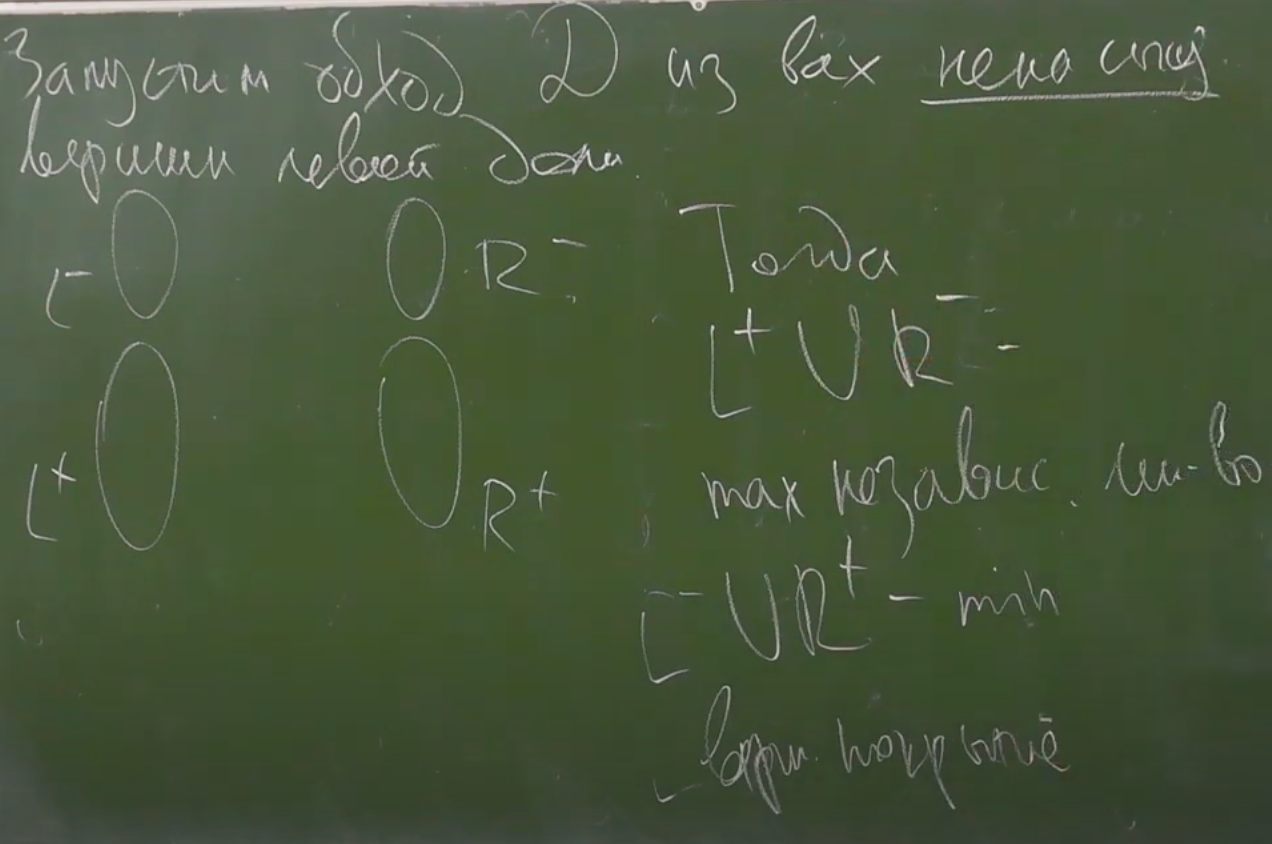 Запустим обход D из всех ненасыщ.
вершин левой доли.
L⁻ R⁻
L⁺ R⁺
Тогда
L⁺ U R⁻ -
max независ. мн-во
L⁻ U R⁺ - min
верш. покрытие